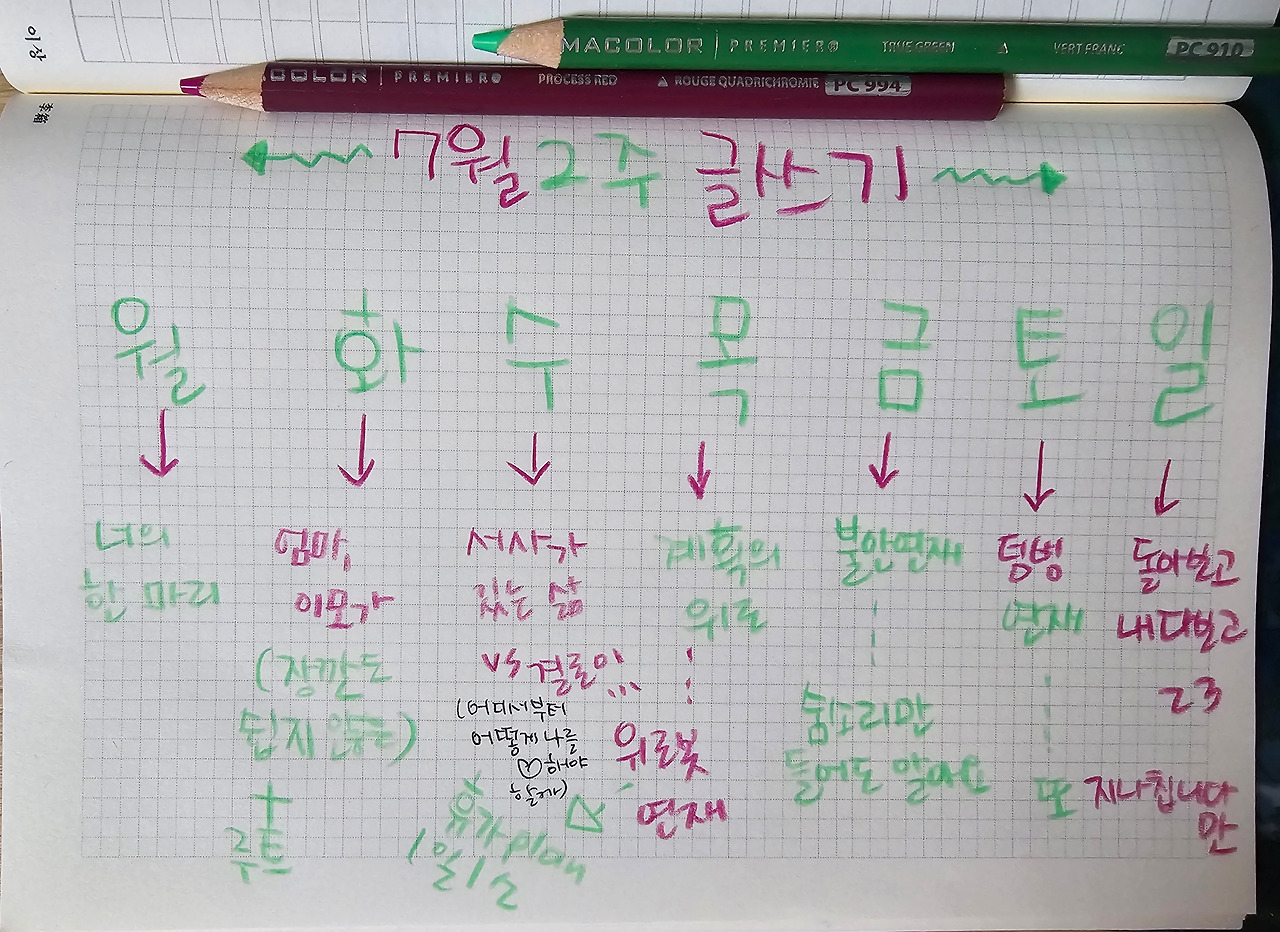 이상
李箱
MACOLOR | PREMIER® TRUE GREEN ▲ VERT FRANC PC 910
COLOR | PREMIER® PROCESS RED ▲ ROUGE QUADRICHROMIE PC 994
7월 2주 글쓰기
월 화 수 목 금 토 일
너의
한 마리
엄마,
이모가
(장깐도
쉽지 않음)
+
루트
서사가
있는 삶
vs 결론이...
(어디서부터
어떻게 나를
해야
할까)
휴가 plan
1일 1
계획의
위로
위로봇
연재
불안연재
숨소리만
들어도 알아요
텀벙
연재
또
돌아보고
내다보고
23
지나칩니다
만